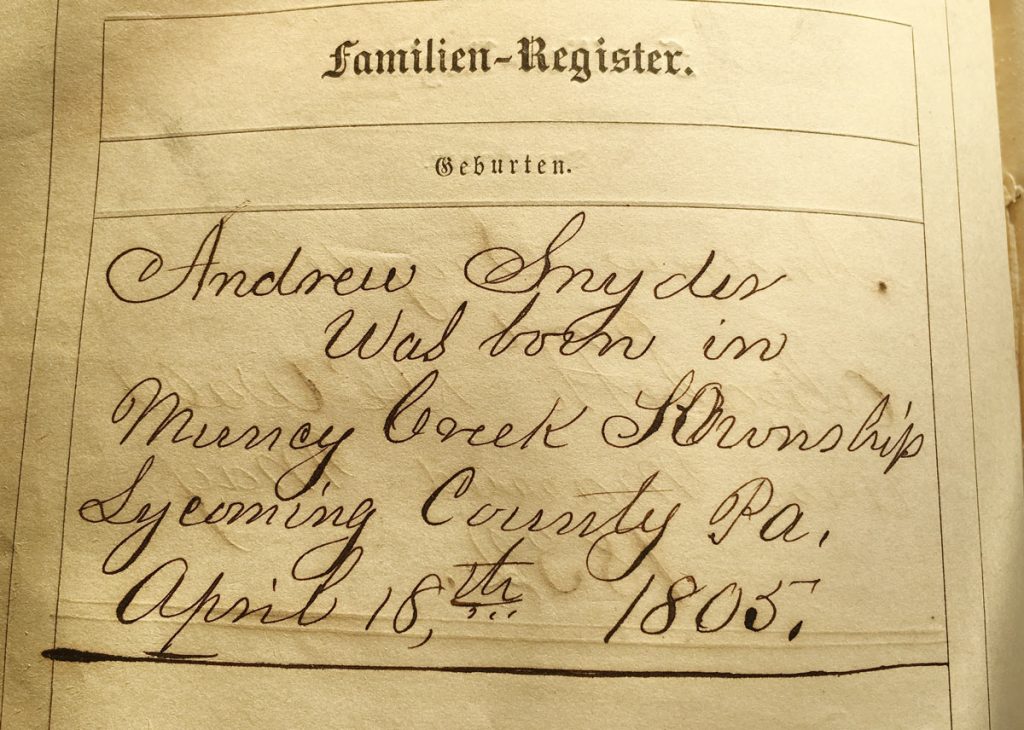 Familien-Register.
Geburten.
Andrew Snyder
Was born in
Muncy Creek Township
Lycoming County Pa.
April 18,th 1805.